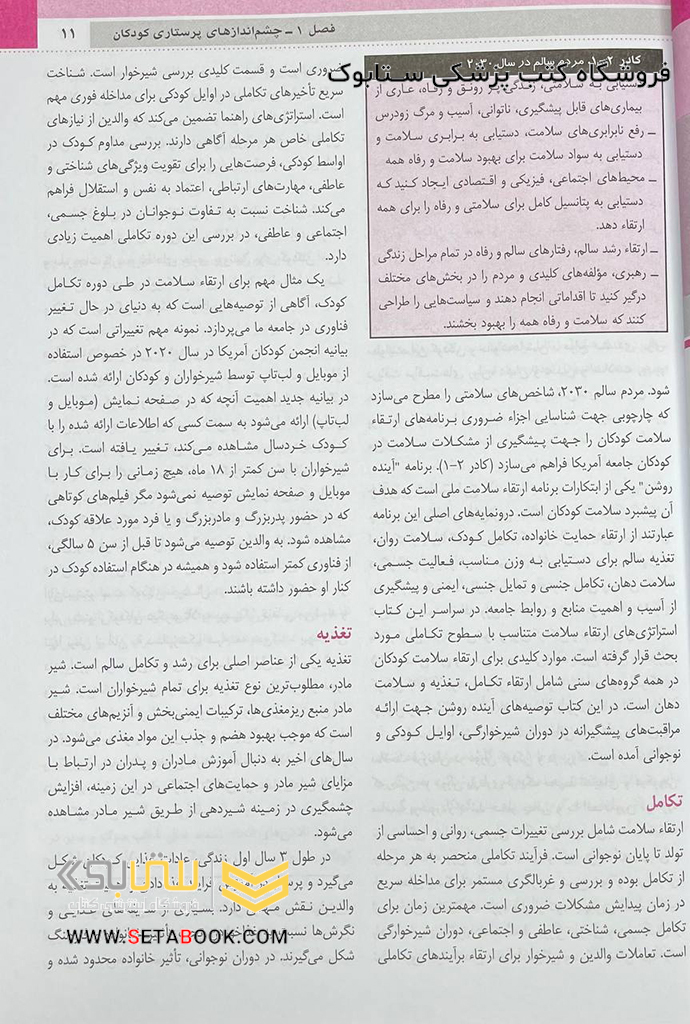 فصل ۱ ــ چشم‌اندازهای پرستاری کودکان
۱۱
کادر ۲–۱ مردم سالم در سال ۲۰۳۰
فروشگاه کتب پزشکی ستابوک
دستیابی به سلامتی، زندگی پر رونق و رفاه، عاری از
بیماری‌های قابل پیشگیری، ناتوانی، آسیب و مرگ زودرس
ــ رفع نابرابری‌های سلامت، دستیابی به برابری سلامت و
دستیابی به سواد سلامت برای بهبود سلامت و رفاه همه
ــ محیط‌های اجتماعی، فیزیکی و اقتصادی ایجاد کنید که
دستیابی به پتانسیل کامل برای سلامتی و رفاه را برای همه
ارتقاء دهد.
ــ ارتقاء رشد سالم، رفتارهای سالم و رفاه در تمام مراحل زندگی
ــ رهبری، مؤلفه‌های کلیدی و مردم را در بخش‌های مختلف
درگیر کنید تا اقداماتی انجام دهند و سیاست‌هایی را طراحی
کنند که سلامت و رفاه همه را بهبود بخشند.
شود. مردم سالم ۲۰۳۰، شاخص‌های سلامتی را مطرح می‌سازد
که چارچوبی جهت شناسایی اجزاء ضروری برنامه‌های ارتقاء
سلامت کودکان را جهت پیشگیری از مشکلات سلامت در
کودکان جامعه آمریکا فراهم می‌سازد (کادر ۲–۱). برنامه "آینده
روشن" یکی از ابتکارات برنامه ارتقاء سلامت ملی است که هدف
آن پیشبرد سلامت کودکان است. درونمایه‌های اصلی این برنامه
عبارتند از ارتقاء حمایت خانواده، تکامل کودک، سلامت روان،
تغذیه سالم برای دستیابی به وزن مناسب، فعالیت جسمی،
سلامت دهان، تکامل جنسی و تمایل جنسی، ایمنی و پیشگیری
از آسیب و اهمیت منابع و روابط جامعه. در سراسر این کتاب
استراتژی‌های ارتقاء سلامت متناسب با سطوح تکاملی مورد
بحث قرار گرفته است. موارد کلیدی برای ارتقاء سلامت کودکان
در همه گروه‌های سنی شامل ارتقاء تکامل، تغذیه و سلامت
دهان است. در این کتاب توصیه‌های آینده روشن جهت ارائه
مراقبت‌های پیشگیرانه در دوران شیرخوارگی، اوایل کودکی و
نوجوانی آمده است.
تکامل
ارتقاء سلامت شامل بررسی تغییرات جسمی، روانی و احساسی از
تولد تا پایان نوجوانی است. فرآیند تکاملی منحصر به هر مرحله
از تکامل بوده و بررسی و غربالگری مستمر برای مداخله سریع
در زمان پیدایش مشکلات ضروری است. مهمترین زمان برای
تکامل جسمی، شناختی، عاطفی و اجتماعی، دوران شیرخوارگی
است. تعاملات والدین و شیرخوار برای ارتقاء برآیندهای تکاملی
ضروری است و قسمت کلیدی بررسی شیرخوار است. شناخت
سریع تأخیرهای تکاملی در اوایل کودکی برای مداخله فوری مهم
است. استراتژی‌های راهنما تضمین می‌کند که والدین از نیازهای
تکاملی خاص هر مرحله آگاهی دارند. بررسی مداوم کودک در
اواسط کودکی، فرصت‌هایی را برای تقویت ویژگی‌های شناختی و
عاطفی، مهارت‌های ارتباطی، اعتماد به نفس و استقلال فراهم
می‌کند. شناخت نسبت به تفاوت نوجوانان در بلوغ جسمی،
اجتماعی و عاطفی، در بررسی این دوره تکاملی اهمیت زیادی
دارد.
یک مثال مهم برای ارتقاء سلامت در طی دوره تکامل
کودک، آگاهی از توصیه‌هایی است که به دنیای در حال تغییر
فناوری در جامعه ما می‌پردازد. نمونه مهم تغییراتی است که در
بیانیه انجمن کودکان آمریکا در سال ۲۰۲۰ در خصوص استفاده
از موبایل و لب‌تاپ توسط شیرخواران و کودکان ارائه شده است.
در بیانیه جدید اهمیت آنچه که در صفحه نمایش (موبایل و
لب‌تاپ) ارائه می‌شود به سمت کسی که اطلاعات ارائه شده را با
کودک خردسال مشاهده می‌کند، تغییر یافته است. برای
شیرخواران با سن کمتر از ۱۸ ماه، هیچ زمانی را برای کار با
موبایل و صفحه نمایش توصیه نمی‌شود مگر فیلم‌های کوتاهی
که در حضور پدربزرگ و مادربزرگ و یا فرد مورد علاقه کودک،
مشاهده شود. به والدین توصیه می‌شود تا قبل از سن ۵ سالگی،
از فناوری کمتر استفاده شود و همیشه در هنگام استفاده کودک در
کنار او حضور داشته باشند.
تغذیه
تغذیه یکی از عناصر اصلی برای رشد و تکامل سالم است. شیر
مادر، مطلوب‌ترین نوع تغذیه برای تمام شیرخواران است. شیر
مادر منبع ریزمغذی‌ها، ترکیبات ایمنی‌بخش و آنزیم‌های مختلف
است که موجب بهبود هضم و جذب این مواد مغذی می‌شود. در
سال‌های اخیر به دنبال آموزش مادران و پدران در ارتباط با
مزایای شیر مادر و حمایت‌های اجتماعی در این زمینه، افزایش
چشمگیری در زمینه شیردهی از طریق شیر مادر مشاهده
می‌شود.
در طول ۳ سال اول زندگی عادات غذایی کودکان شکل
می‌گیرد و
والدین نقش مهمی دارد. بسیاری از
نگرش‌ها نسبت به
شکل می‌گیرند. در دوران نوجوانی، تأثیر خانواده محدود شده و
ستابوک
فروشگاه اینترنتی کتاب
WWW.SETABOOK.COM